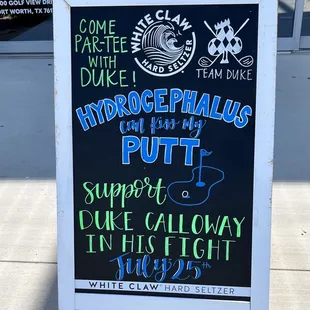 00 GOLF VIEW DRIV
ORT WORTH, TX 761
COME
PAR-TEE
WITH
DUKE!
WHITE CLAW
HARD SELTZER
TEAM DUKE
HYDROCEPHALUS
can kiss my
PUTT
support
DUKE CALLOWAY
IN HIS FIGHT
July 25th
WHITE CLAW HARD SELTZER